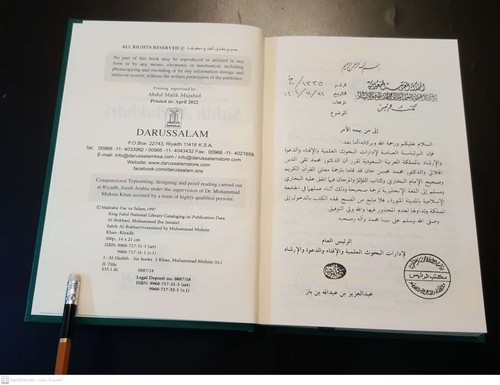 ALL RIGHTS RESERVED © جميع حقوق الطبع محفوظة
No part of this book may be reproduced or utilized in any
form or by any means, electronic or mechanical, including
photocopying and recording or by any information storage and
retrieval system, without the written permission of the publisher.
Printing supervised by
Abdul Malik Mujahid
Printed in: April 2022
DARUSSALAM
P.O.Box 22743, Riyadh 11416 K.S.A.
Tel: 00966 -11- 4033962 / 00966 -11- 4043432 Fax: 00966 -11- 4021659
E-mail: info@darussalamksa.com / darussalam@darussalamstore.com
Website: www.darussalamstore.com
facebook.com/darussalam.sns
Computerized Typesetting, designing and proof reading carried out
at Riyadh, Saudi Arabia under the supervision of Dr. Muhammad
Muhsin Khan assisted by a team of highly qualified persons.
© Maktaba Dar us Salam,1997
King Fahd National Library Cataloging-in-Publication Data
Al-Bukhari, Muhammad Ibn Ismail
Sahih Al-Bukhari/translated by Muhammad Muhsin
Khan.-Riyadh.
500p., 14 x 21 cm
ISBN: 9960-717-31-3 (set)
9960-717-32-1 (v.1)
1- Al-Hadith - Six books I-Khan, Muhammad Muhsin (tr.)
II-Title
235.1 dc 0887/18
Legal Deposit no. 0887/18
ISBN: 9960-717-31-3 (set)
9960-717-32-1 (v.1)
بسم الله الرحمن الرحيم
المملكة العربية السعودية
مكتب الرئيس
الرقم
التاريخ
المرفقات
الموضوع
إلى من يهمه الأمر
السلام عليكم ورحمة الله وبركاته، أما بعد:
فإن الرئاسة العامة لإدارات البحوث العلمية والإفتاء والدعوة
والإرشاد بالمملكة العربية السعودية تقرر أن الدكتور محمد تقي الدين
الهلالي والدكتور محمد محسن خان قد قاما بترجمة معاني القرآن الكريم
وصحيح الإمام البخاري وكتاب اللؤلؤ والمرجان فيما اتفق عليه البخاري
ومسلم إلى اللغة الإنجليزية ترجمة صحيحة وذلك أثناء عملهما في الجامعة
الإسلامية بالمدينة المنورة، فلا مانع من الفسح لهذه الكتب بالدخول إلى
المملكة وتداولها لعدم المحذور فيها والله ولي التوفيق
وصلى الله وسلم على نبينا محمد وآله وصحبه
الرئيس العام
لإدارات البحوث العلمية والإفتاء والدعوة والإرشاد
عبدالعزيز بن عبدالله بن باز
مكتب الرئيس